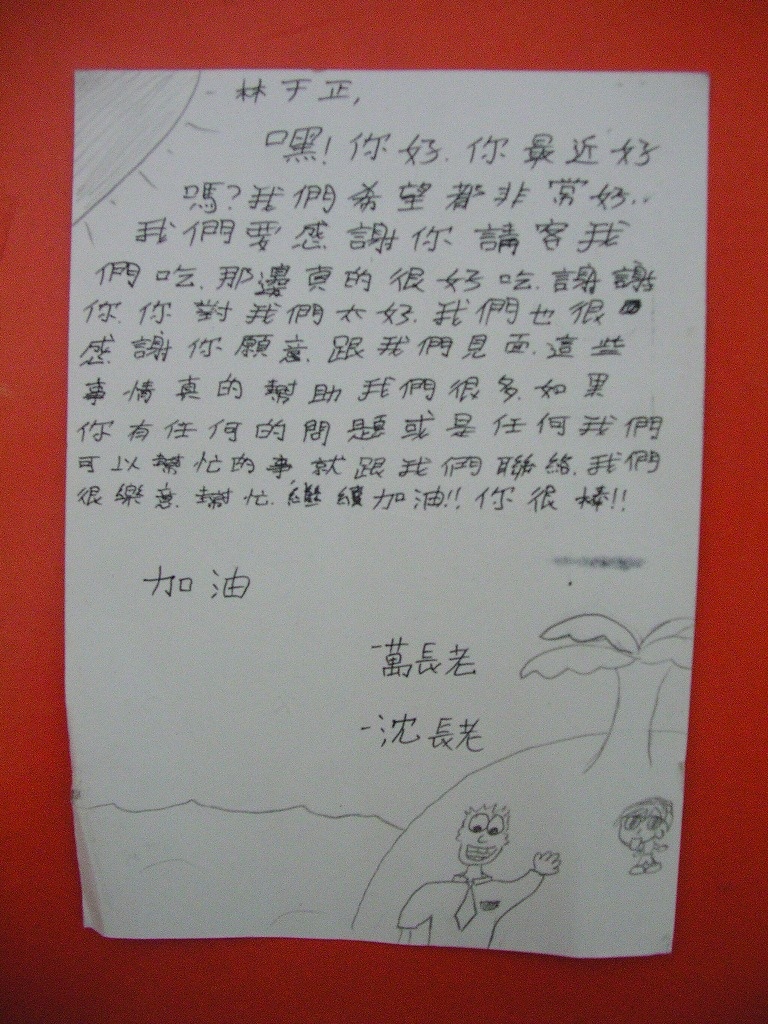 林于正,
嘿!你好.你最近好
嗎?我們希望都非常好..
我們要感謝你請客我
們吃.那邊真的很好吃.謝謝
你.你對我們太好.我們也很
感謝你願意跟我們見面.這些
事情真的幫助我們很多.如果
你有任何的問題或是任何我們
可以幫忙的事就跟我們聯絡.我們
很樂意幫忙.繼續加油!!你很棒!!
加油
-萬長老
-沈長老